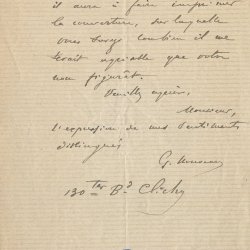 il aura à faire imprimer
la couverture, sur laquelle
vous savez combien il me
serait agréable que votre
nom figurât.
Veuillez agréer,
Monsieur,
l'expression de mes sentiments
distingués
G.
130 ter Bd Clichy